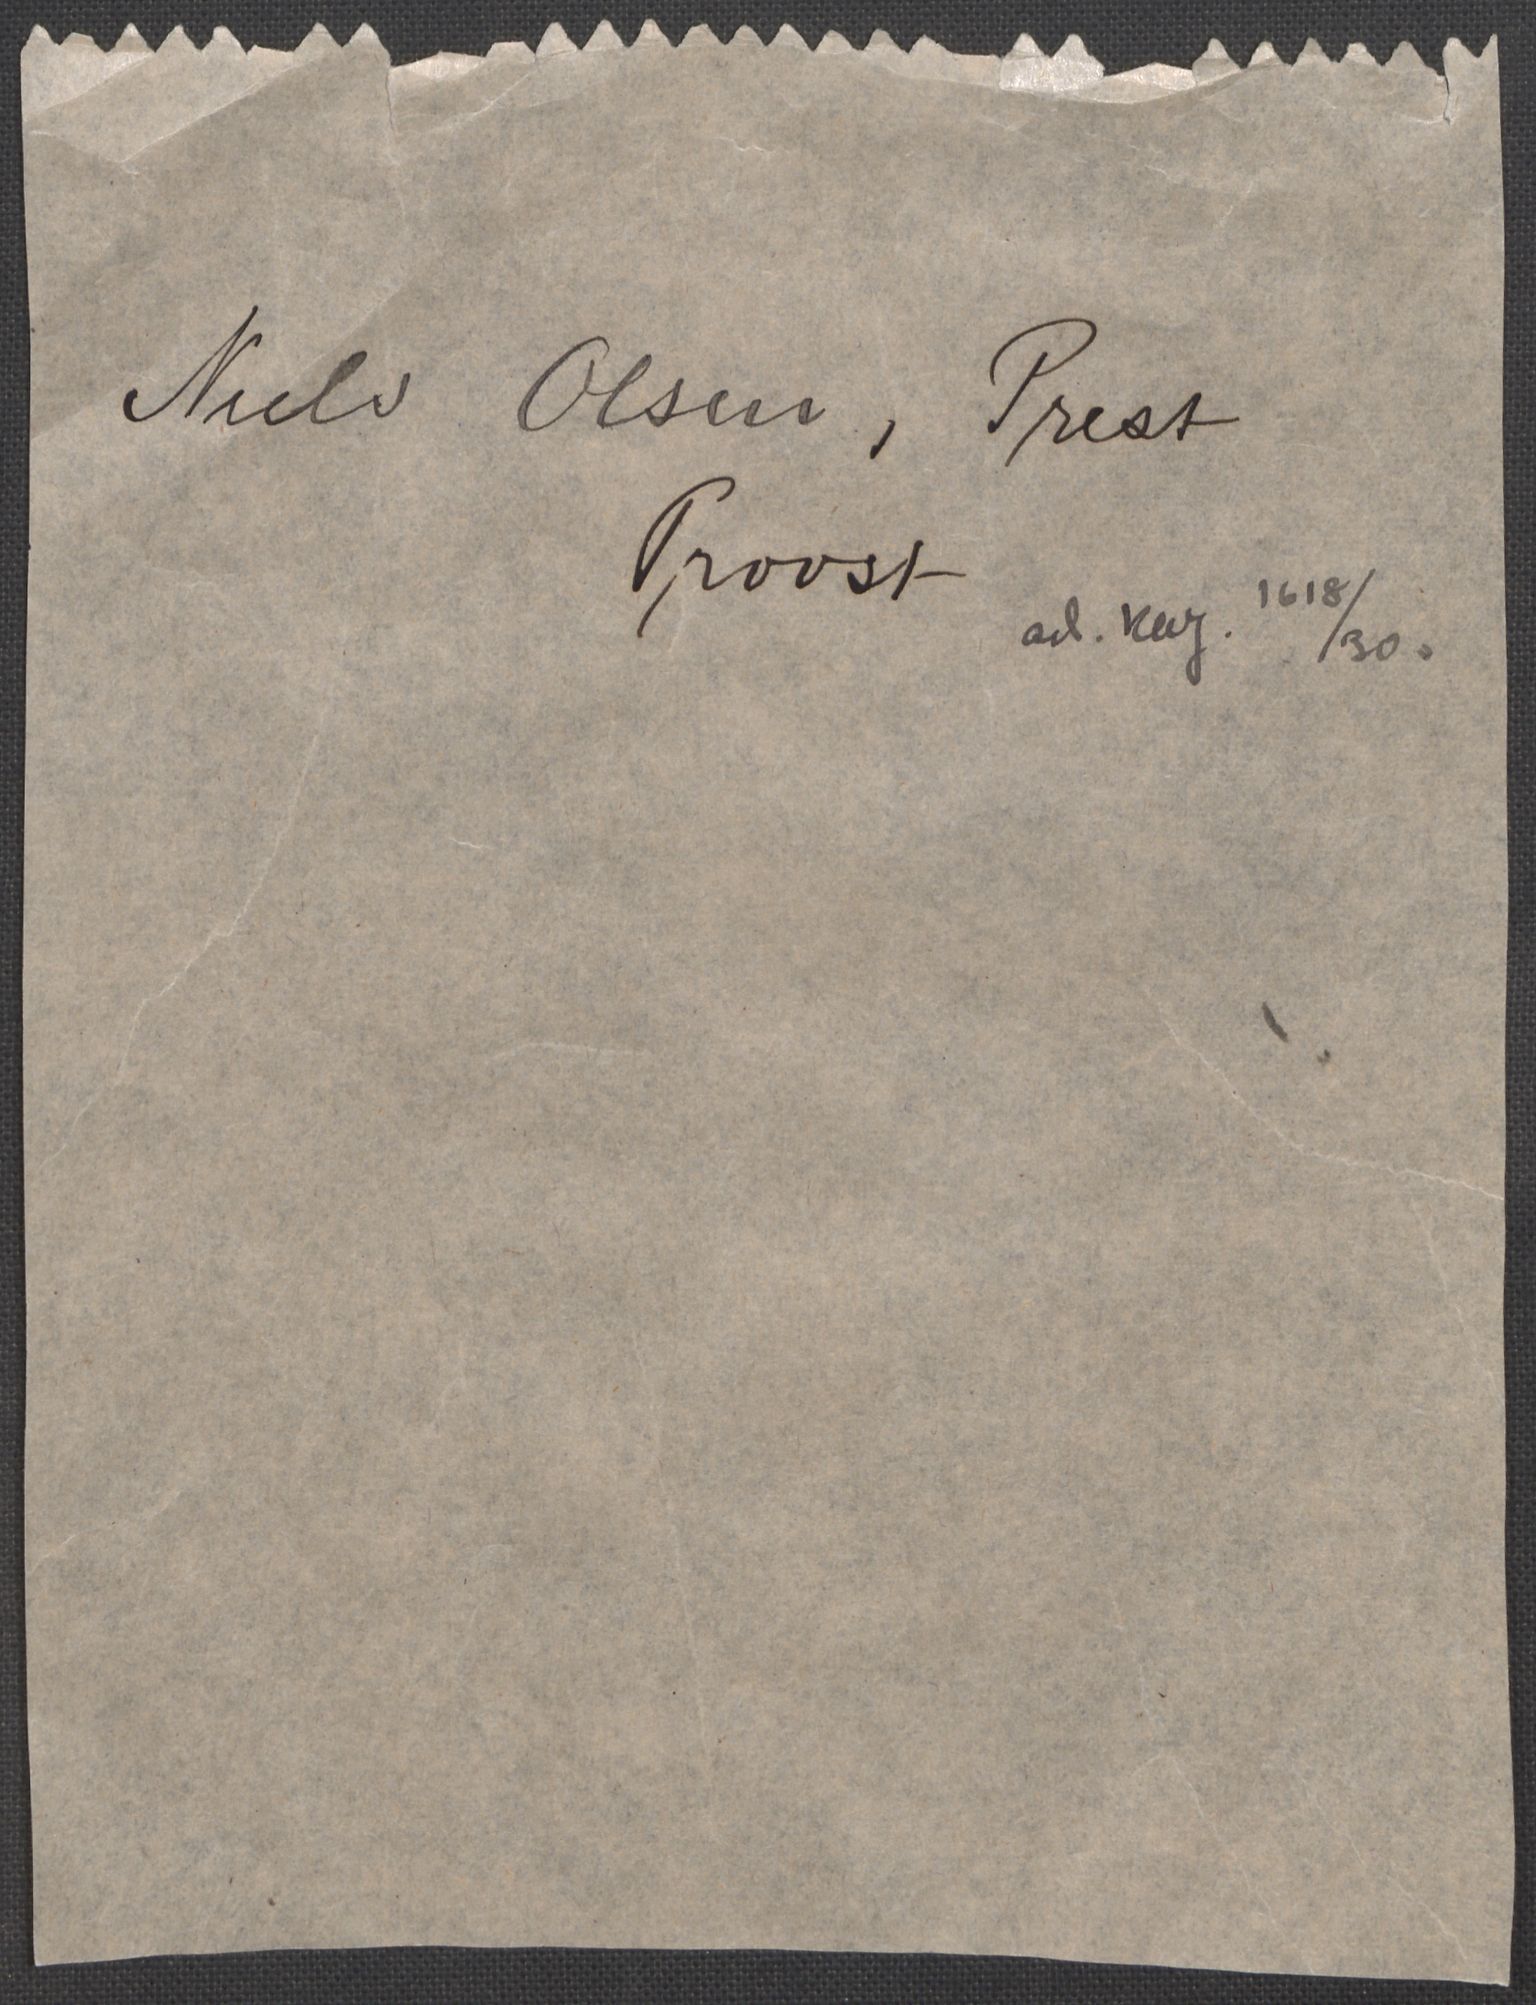 Niels Olsen, Prest
Provst
ad. Kay. 1618/30.